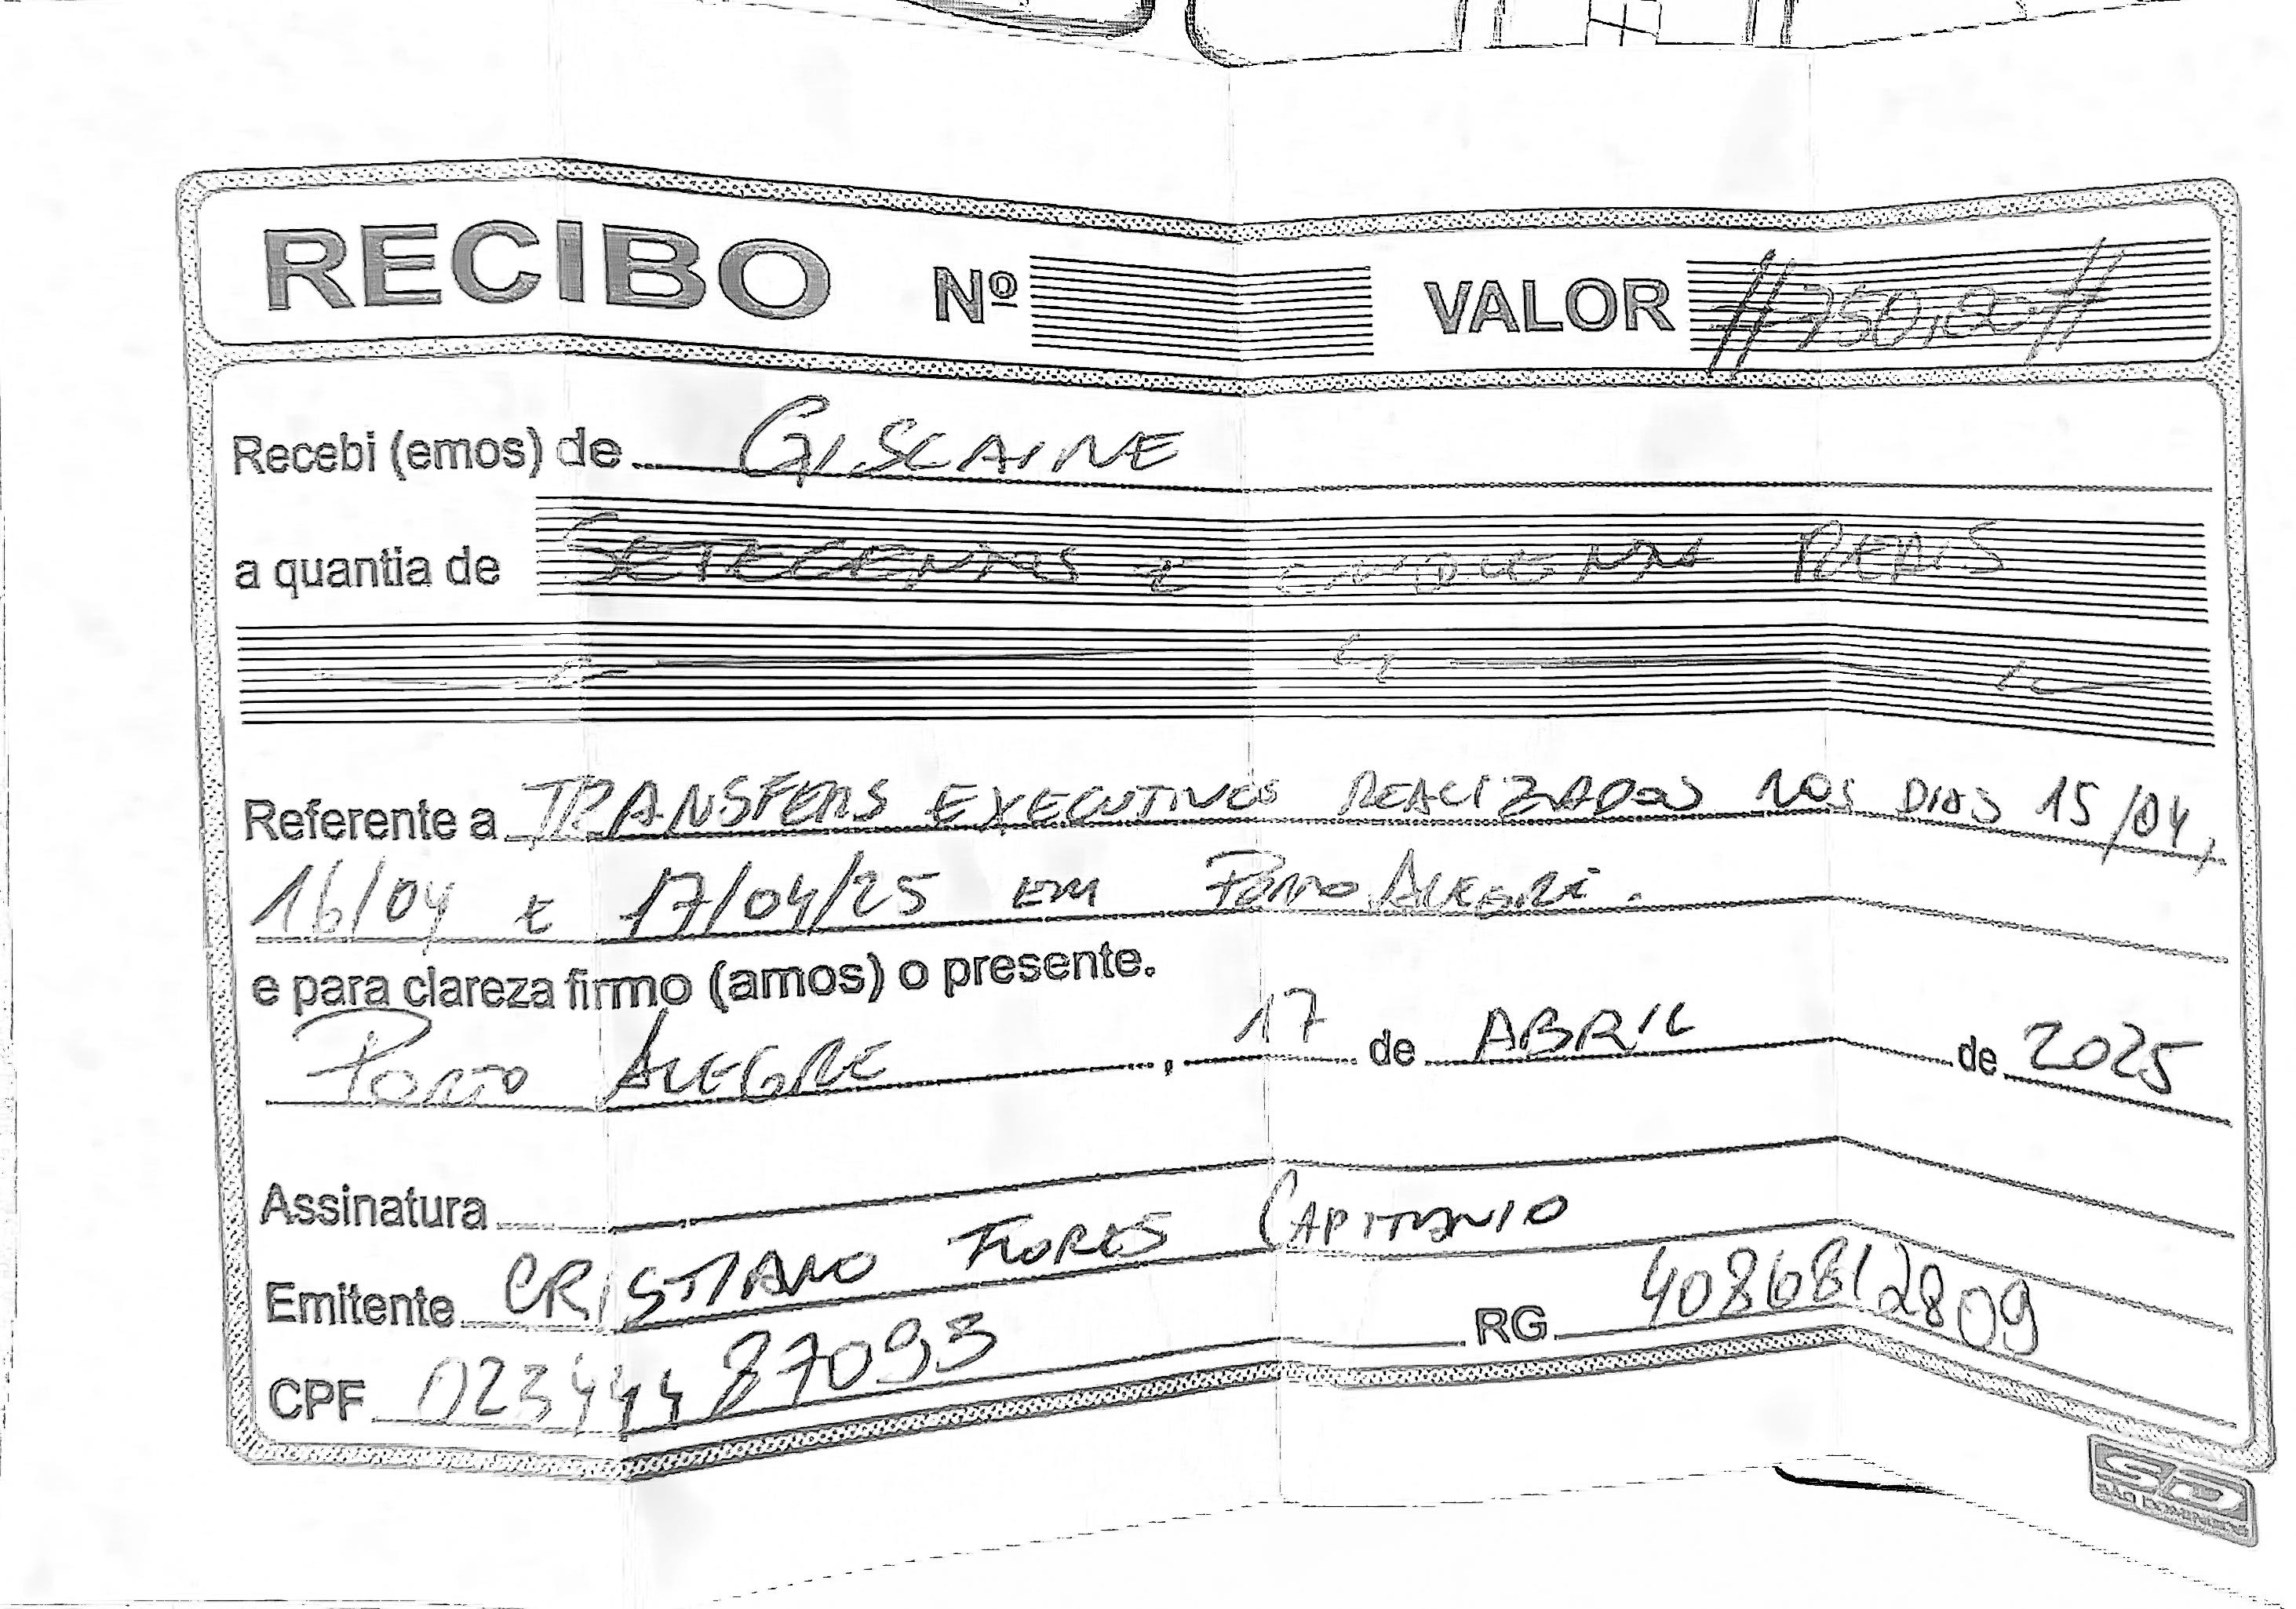 RECIBO Nº VALOR // 750,00 //
Recebi (emos) de GISCAINE
a quantia de SETECENTOS E CINQUENTA REAIS
Referente a TRANSFERS EXECUTIVOS REALIZADOS NOS DIAS 15/04,
16/04 E 17/04/25 EM PORTO ALEGRE.
e para clareza firmo (amos) o presente.
PORTO ALEGRE, 17 de ABRIL de 2025
Assinatura
Emitente CRISTIANO FLORES CAPITANIO
CPF 02344487093 RG 4086812809
SD
SÃO DOMINGOS